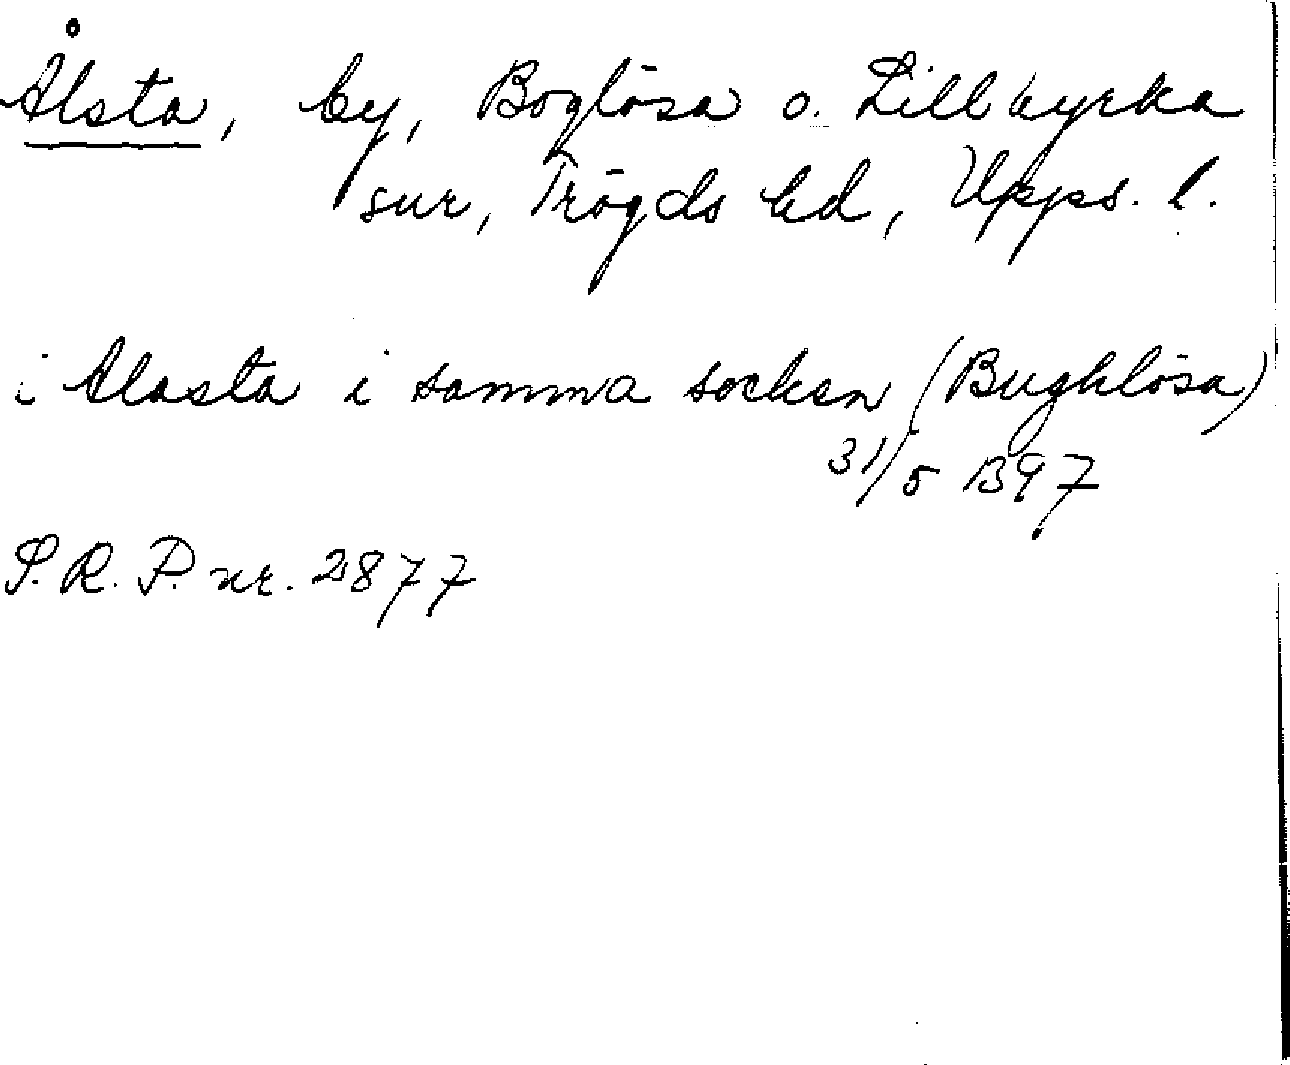 Ålsta, by, Boglösa o. Lillkyrka
snr, Trögds hd, Upps. l.
i Alasta i samma socken (Bughlösa)
31/5 1397
S.R.P. nr. 2877